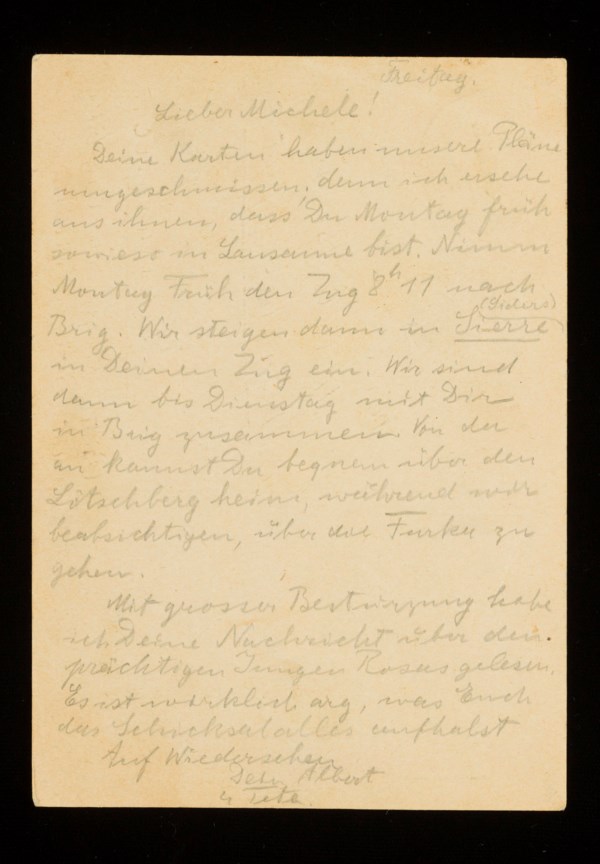 Freitag.
Lieber Michele!
Deine Karten haben unsere Pläne
umgeschmissen, denn ich ersehe
aus ihnen, dass Du Montag früh
sowieso in Lausanne bist. Nimm
Montag Früh den Zug 8h 11 nach
(Siders)
Brig. Wir steigen dann in Sierre
in Deinen Zug ein. Wir sind
dann bis Dienstag mit Dir
in Brig zusammen. Von da
an kannst Du bequem über den
Lötschberg heim, während wir
beabsichtigen, über die Furka zu
gehen.
Mit grosser Bestürzung habe
ich Deine Nachricht über den
prächtigen Jungen Rosas gelesen.
Es ist wirklich arg, was Euch
das Schicksal alles aufhalst
Auf Wiedersehen
Dein Albert
u Tete.